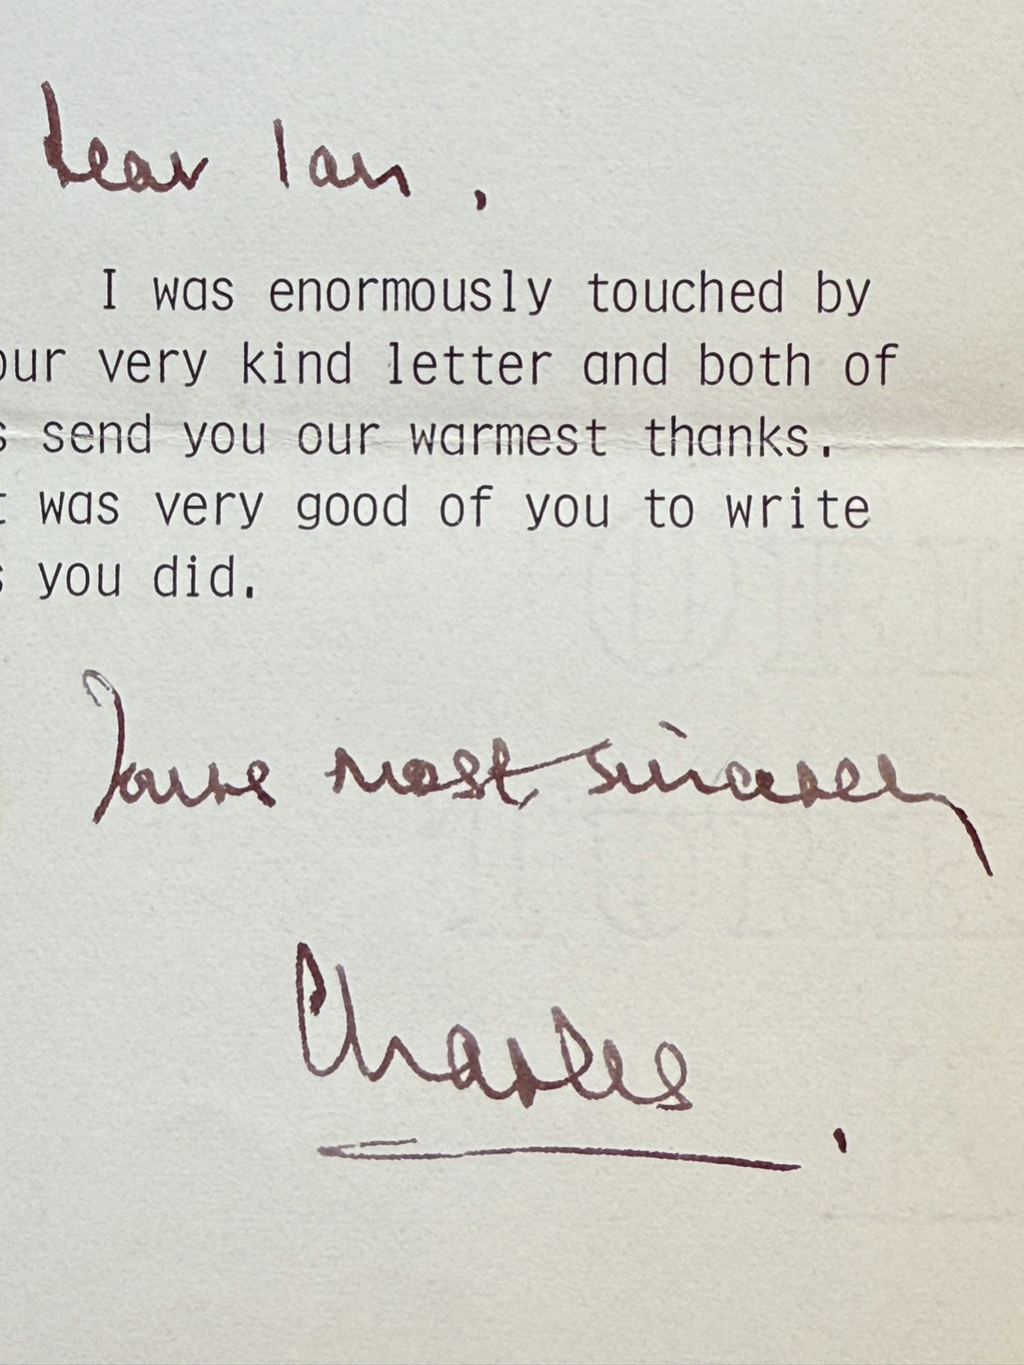 Dear Ian,
I was enormously touched by
our very kind letter and both of
s send you our warmest thanks.
t was very good of you to write
s you did.
Yours most sincerely
Charles.